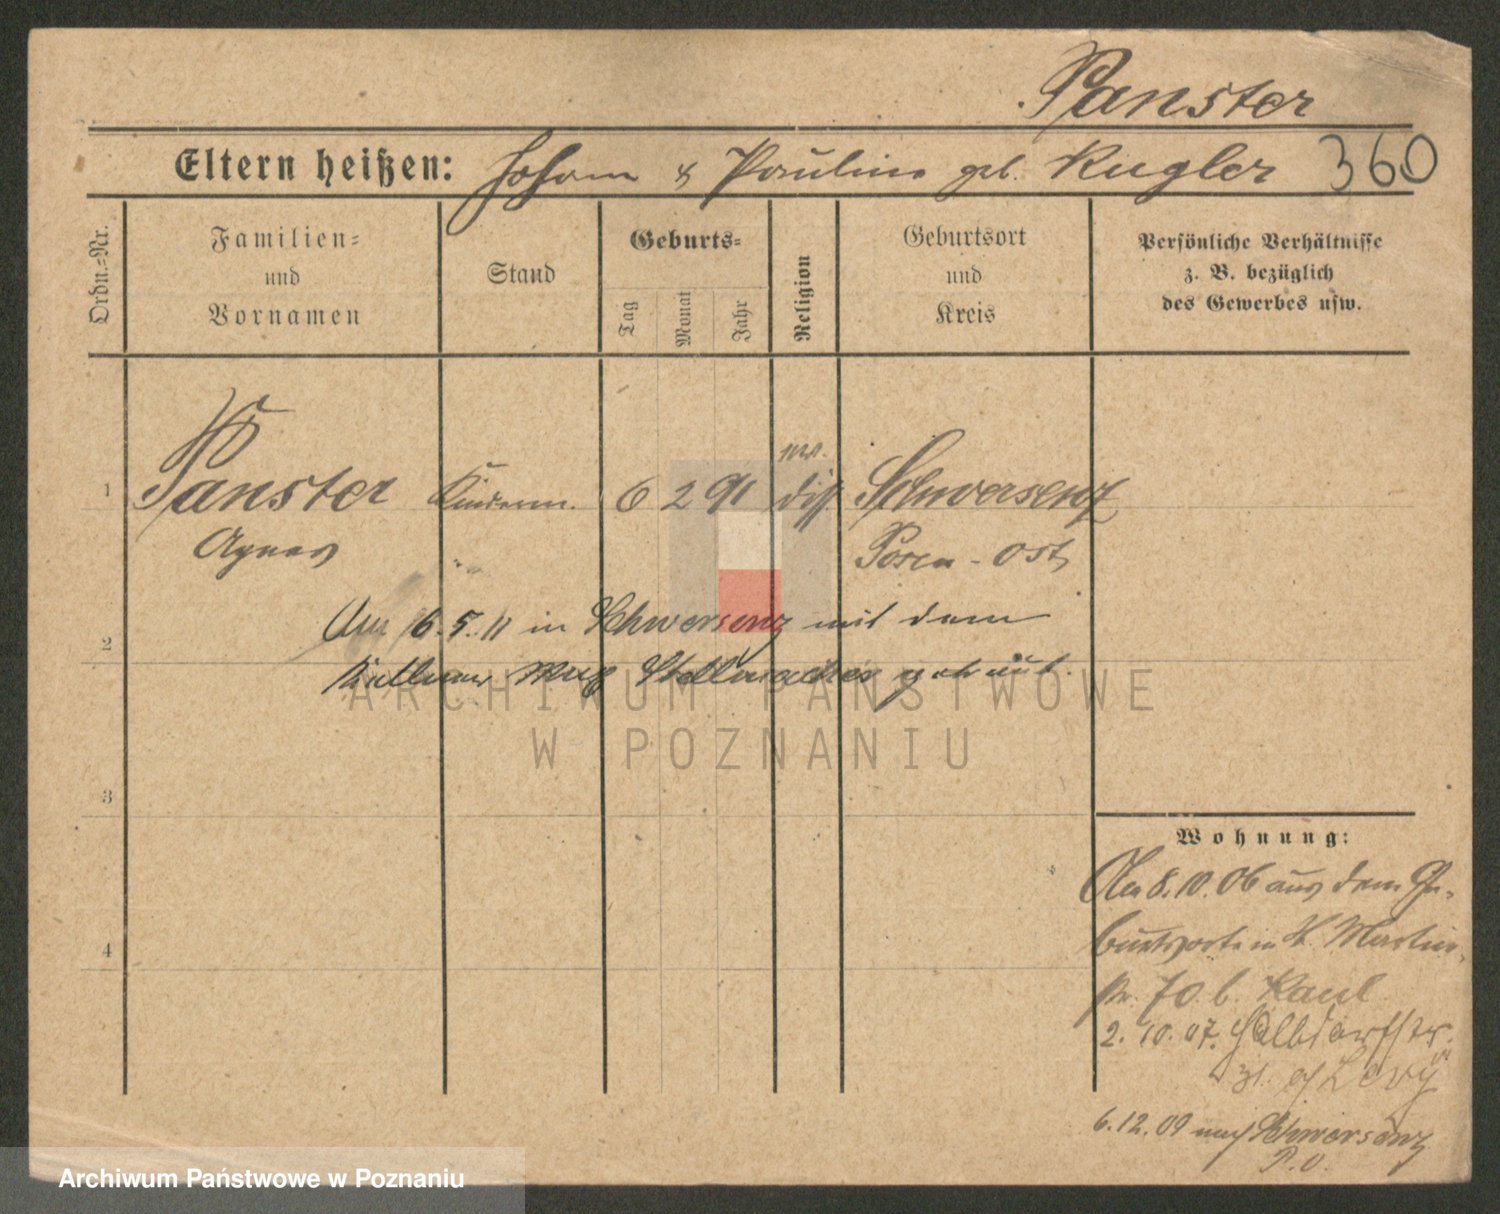 Panster
Eltern heißen: Johann & Pauline geb. Kugler 360
Ordn.-Nr.
Familien-
und
Vornamen
Stand
Geburts-
Tag
Monat
Jahr
Religion
Geburtsort
und
Kreis
Persönliche Verhältnisse
z. B. bezüglich
des Gewerbes usw.
1 Panster Kinderm. 6 2 91 diss. Schwersenz
Agnes Posen-Ost
Am 16.5.11 in Schwersenz mit dem
2
Kellner Max Stellmacher getraut.
ARCHIWUM PAŃSTWOWE
W POZNANIU
3
4
Wohnung:
Am 8.10.06 aus dem Ge-
burtsorte n. St. Martin-
str. 70 b. Kaul
2.10.07. Halbdorfstr.
31. b/ Levy
6.12.09 nach Schwersenz
P.O.
Archiwum Państwowe w Poznaniu